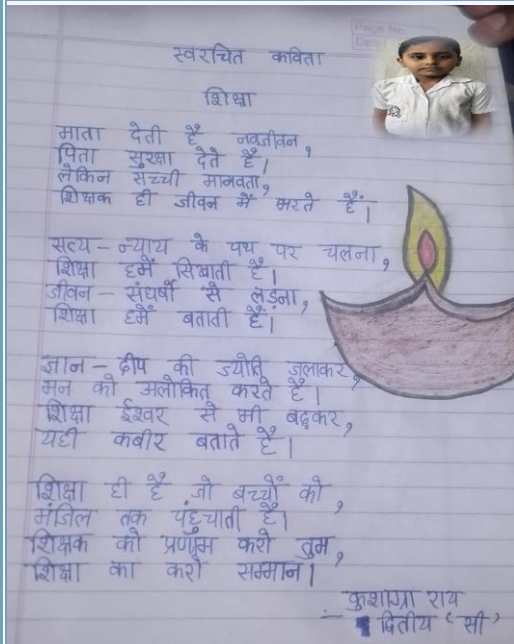 Page No.
Date
स्वरचित कविता
शिक्षा
माता देती है नवजीवन,
पिता सुरक्षा देते हैं।
लेकिन सच्ची मानवता,
शिक्षक ही जीवन में भरते हैं।
सत्य-न्याय के पथ पर चलना,
शिक्षा हमें सिखाती है।
जीवन-संघर्षो से लड़ना,
शिक्षा हमें बताती है।
ज्ञान-दीप की ज्योति जलाकर,
मन को अलोकित करते है।
शिक्षा ईश्वर से भी बढ़कर,
यही कबीर बताते है।
शिक्षा ही है जो बच्चों को,
मंजिल तक पंहुचाती है।
शिक्षक को प्रणाम करो तुम,
शिक्षा का करो सम्मान।
कुशाग्रा राय
द्वितीय (सी)